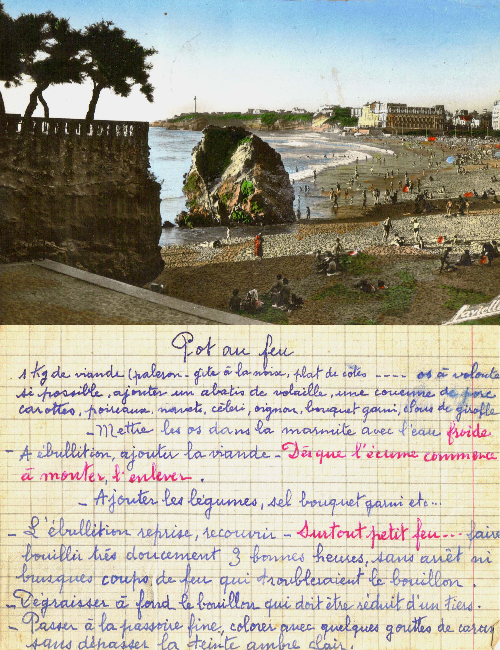 Pot au feu
1 kg de viande (paleron - gîte à la noix, plat de côtes ---- os à volonté
si possible, ajouter un abatis de volaille, une couenne de porc
carottes, poireaux, navets, céleri, oignon, bouquet garni, clous de girofle
- Mettre les os dans la marmite avec l'eau froide
- A ébullition, ajouter la viande - Dès que l'écume commence
à monter, l'enlever.
- Ajouter les légumes, sel bouquet garni etc...
- L'ébullition reprise, recouvrir - Surtout petit feu... faire
bouillir très doucement 3 bonnes heures, sans arrêt ni
brusques coups, de feu qui troubleraient le bouillon.
- Dégraisser à fond le bouillon qui doit être réduit d'un tiers.
- Passer à la passoire fine, colorer avec quelques gouttes de
sans dépasser la teinte ambre clair.